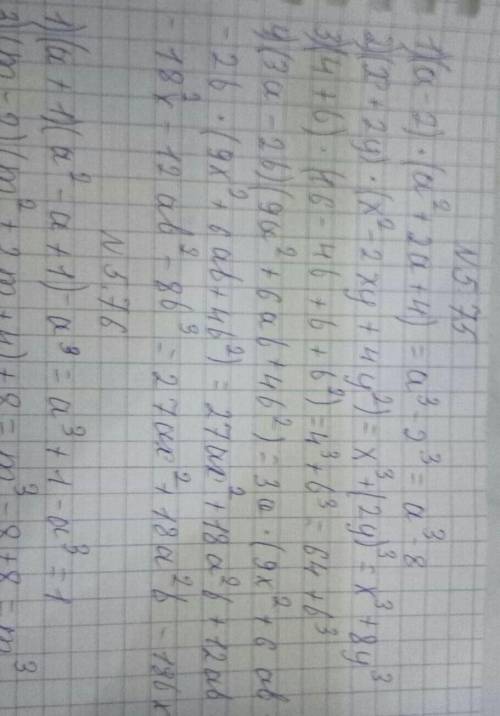 N 575
1) (a - 2) · (a² + 2a + 4) = a³ - 2³ = a³ - 8
2) (x + 2y) · (x² - 2xy + 4y²) = x³ + (2y)³ = x³ + 8y³
3) (4 + b) · (16 - 4b + b²) = 4³ + b³ = 64 + b³
4) (3a - 2b)(9a² + 6ab + 4b²) = 3a · (9x² + 6ab
- 2b · (9x² + 6ab + 4b²) = 27ax² + 18a²b + 12ab
- 18x² - 12ab² - 8b³ = 27ax² + 18a²b - 18bx
N 576
1) (a + 1)(a² - a + 1) - a³ = a³ + 1 - a³ = 1
2) (m - 2)(m² + 2m + 4) + 8 = m³ - 8 + 8 = m³